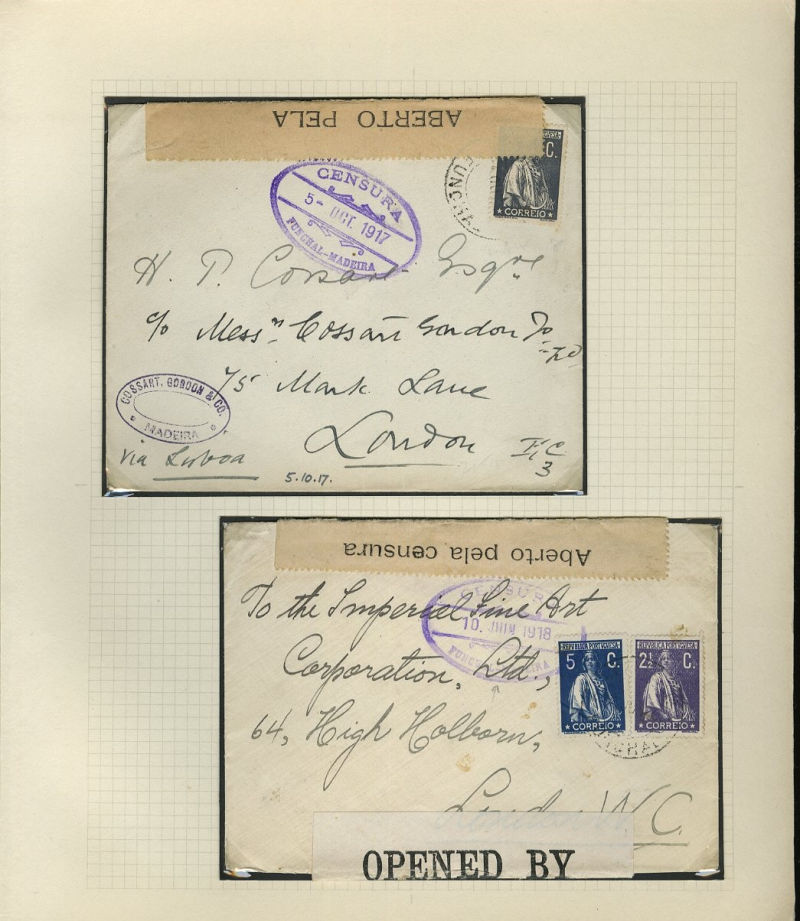 ABERTO PELA
C.
CORREIO
FUNCHAL
CENSURA
5- OCT. 1917
FUNCHAL-MADEIRA
H. P. Cossart Esqre
c/o Messrs Cossart Gordon &
75 Mark Lane
COSSART, GORDON & CO.
MADEIRA
London
E.C.
3
via Lisboa
5.10.17.
Aberto pela censura
CENSURA
10. JUN 1918
FUNCHAL-MADEIRA
To the Imperial Fine Art
Corporation, Ltd.,
64, High Holborn,
London W.C.
REPUBLICA PORTUGUESA
5 C.
CORREIO
REPUBLICA PORTUGUESA
2½ C.
CORREIO
OPENED BY